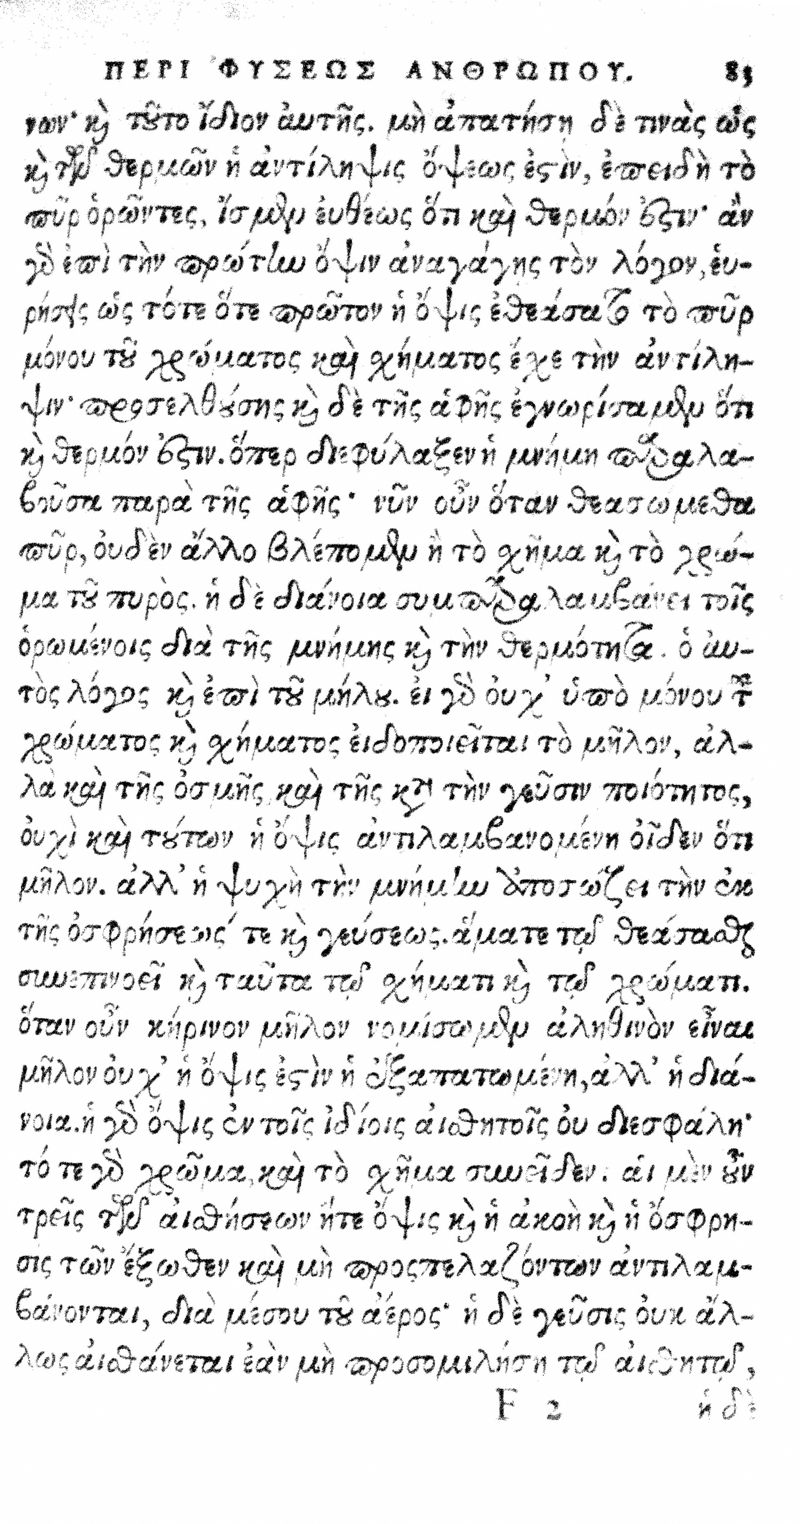 ΠΕΡΙ ΦΥΣΕΩΣ ΑΝΘΡΩΠΟΥ. 83
νων· καὶ τοῦτο ἴδιον ἀυτῆς. μὴ ἀπατήσῃ δὲ τινὰς ὡς
καὶ τῶν θερμῶν ἡ ἀντίληψις ὄψεως ἐστὶν, ἐπειδὴ τὸ
πῦρ ὁρῶντες, ἴσμεν ἐυθέως ὅτι καὶ θερμόν ἐστιν· ἂν
γὰρ ἐπὶ τὴν πρώτην ὄψιν ἀναγάγῃς τὸν λόγον, ἑυ-
ρήσεις ὡς τότε ὅτε πρῶτον ἡ ὄψις ἐθεάσατο τὸ πῦρ
μόνου τοῦ χρώματος καὶ σχήματος ἔσχε τὴν ἀντίλη-
ψιν· προσελθούσης καὶ δὲ τῆς ἁφῆς ἐγνωρίσαμεν ὅτι
καὶ θερμόν ἐστιν. ὅπερ διεφύλαξεν ἡ μνήμη παραλα-
βοῦσα παρὰ τῆς ἁφῆς· νῦν οὖν ὅταν θεασωμεθα
πῦρ, ὀυδὲν ἄλλο βλέπομεν ἢ τὸ σχῆμα καὶ τὸ χρώ-
μα τοῦ πυρὸς. ἡ δὲ διάνοια συμπαραλαμβάνει τοῖς
ὁρωμένοις διὰ τῆς μνήμης καὶ τὴν θερμότητα. ὁ ἀυ-
τὸς λόγος καὶ ἐπὶ τοῦ μήλου. ἐι γὰρ ὀυχ’ ὑπὸ μόνου τοῦ
χρώματος καὶ σχήματος ἐιδοποιεῖται τὸ μῆλον, ἀλ-
λὰ καὶ τῆς ὀσμῆς καὶ τῆς κατὰ τὴν γεῦσιν ποιότητος,
ὀυχὶ καὶ τούτων ἡ ὄψις ἀντιλαμβανομένη οἶδεν ὅτι
μῆλον. ἀλλ’ ἡ ψυχὴ τὴν μνήμην ὑποσώζει τὴν ἐκ
τῆς ὀσφρήσεως τε καὶ γεύσεως. ἅματε τῷ θεάσασθαι
συνεπινοεῖ καὶ ταῦτα τῷ σχήματι καὶ τῷ χρώματι.
ὅταν οὖν κήρινον μῆλον νομίσωμεν ἀληθινὸν εἶναι
μῆλον ὀυχ’ ἡ ὄψις ἐστὶν ἡ ἐξαπατωμένη, ἀλλ’ ἡ διά-
νοια. ἡ γὰρ ὄψις ἐν τοῖς ἰδίοις ἀισθητοῖς ὀυ διεσφάλη·
τό τε γὰρ χρῶμα, καὶ τὸ σχῆμα συνεῖδεν. ἁι μὲν οὖν
τρεῖς τῶν ἀισθήσεων ἥτε ὄψις καὶ ἡ ἀκοὴ καὶ ἡ ὄσφρη-
σις τῶν ἔξωθεν καὶ μὴ προςπελαζόντων ἀντιλαμ-
βάνονται, διὰ μέσου τοῦ ἀέρος· ἡ δὲ γεῦσις ὀυκ ἄλ-
λως ἀισθάνεται ἐὰν μὴ προσομιλήσῃ τῷ ἀισθητῷ,
F 2 ἡ δὲ